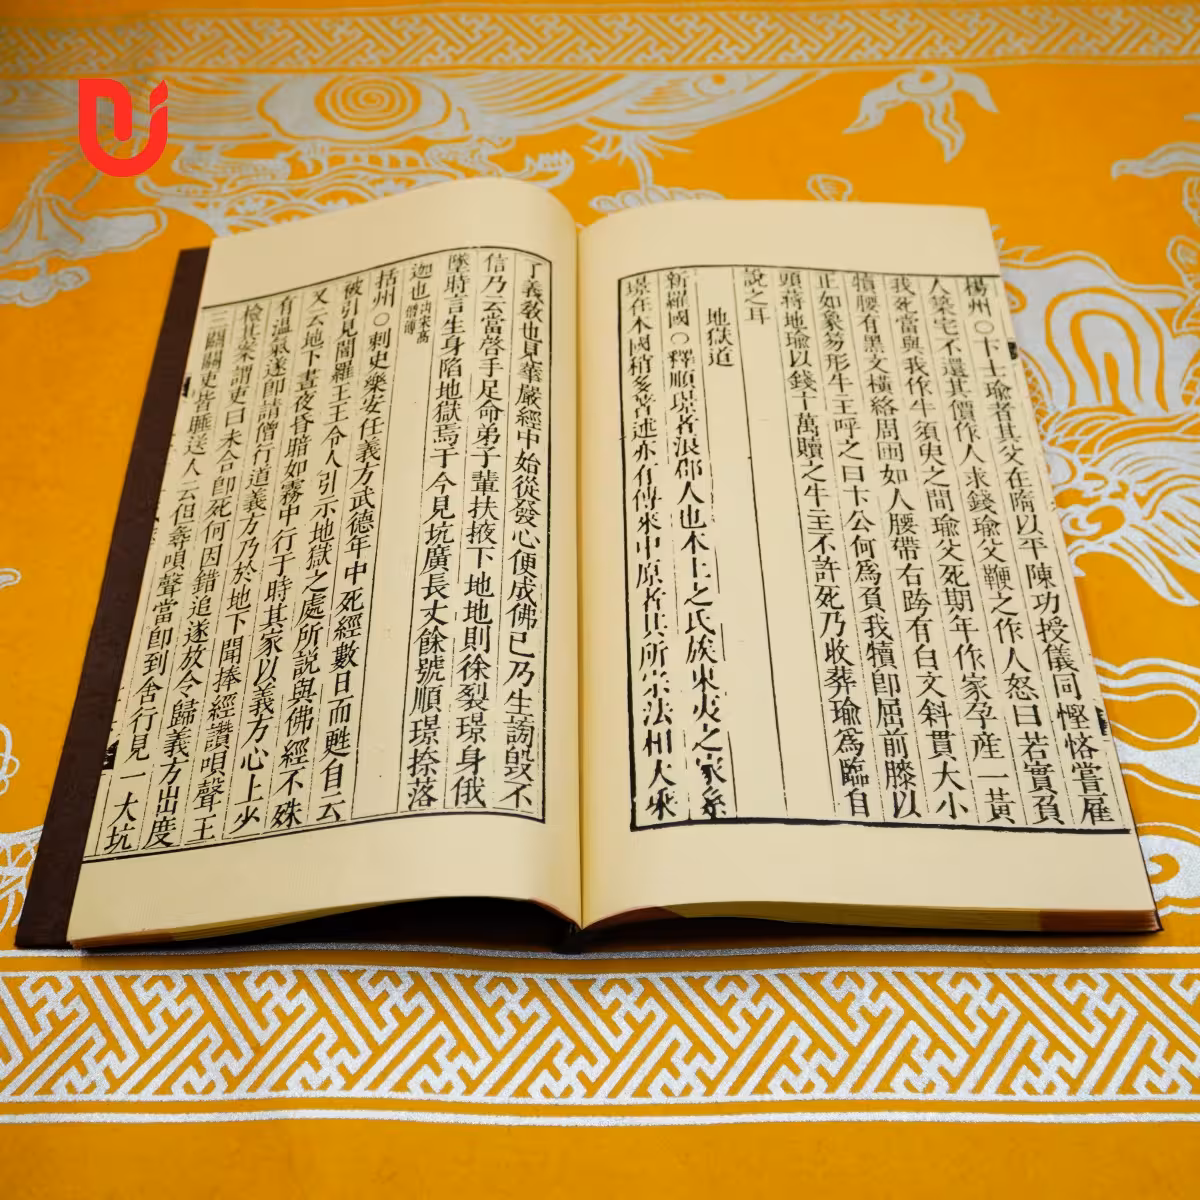 楊州〇卞士瑜者其父在隋以平陳功授儀同慳悋嘗雇
人築宅不還其價作人求錢瑜父鞭之作人怒曰若實負
我死當與我作牛須臾之間瑜父死期年作家孕産一黃
犢腰有黑文橫絡周匝如人腰帶右跨有白文斜貫大小
正如象笏形牛主呼之曰卞公何爲負我犢卽屈前膝以
頭著地瑜以錢十萬贖之牛主不許死乃收葬瑜爲臨自
說之耳
地獄道
新羅國〇釋順璟者浪郡人也本土之氏族東夷之家系
璟在本國稍多著述亦有傳來中原者其所宗法相大乘
了義敎也見華嚴經中始從發心便成佛已乃生謗毀不
信乃云當啓手足命弟子輩扶掖下地地則徐裂璟身俄
墜時言生身陷地獄焉于今見坑廣長丈餘號順璟捺落
迦也出宋高僧傳
括州〇刺史樂安任義方武德年中死經數日而甦自云
被引見閻羅王王令人引示地獄之處所說與佛經不殊
又云地下晝夜昏暗如霧中行于時其家以義方心上少
有溫氣遂卽請僧行道義方乃於地下聞捧經讚唄聲王
檢其案謂吏曰未合卽死何因錯追遂放令歸義方出度
三關關吏皆睡送人云但尋唄聲當卽到舍行見一大坑